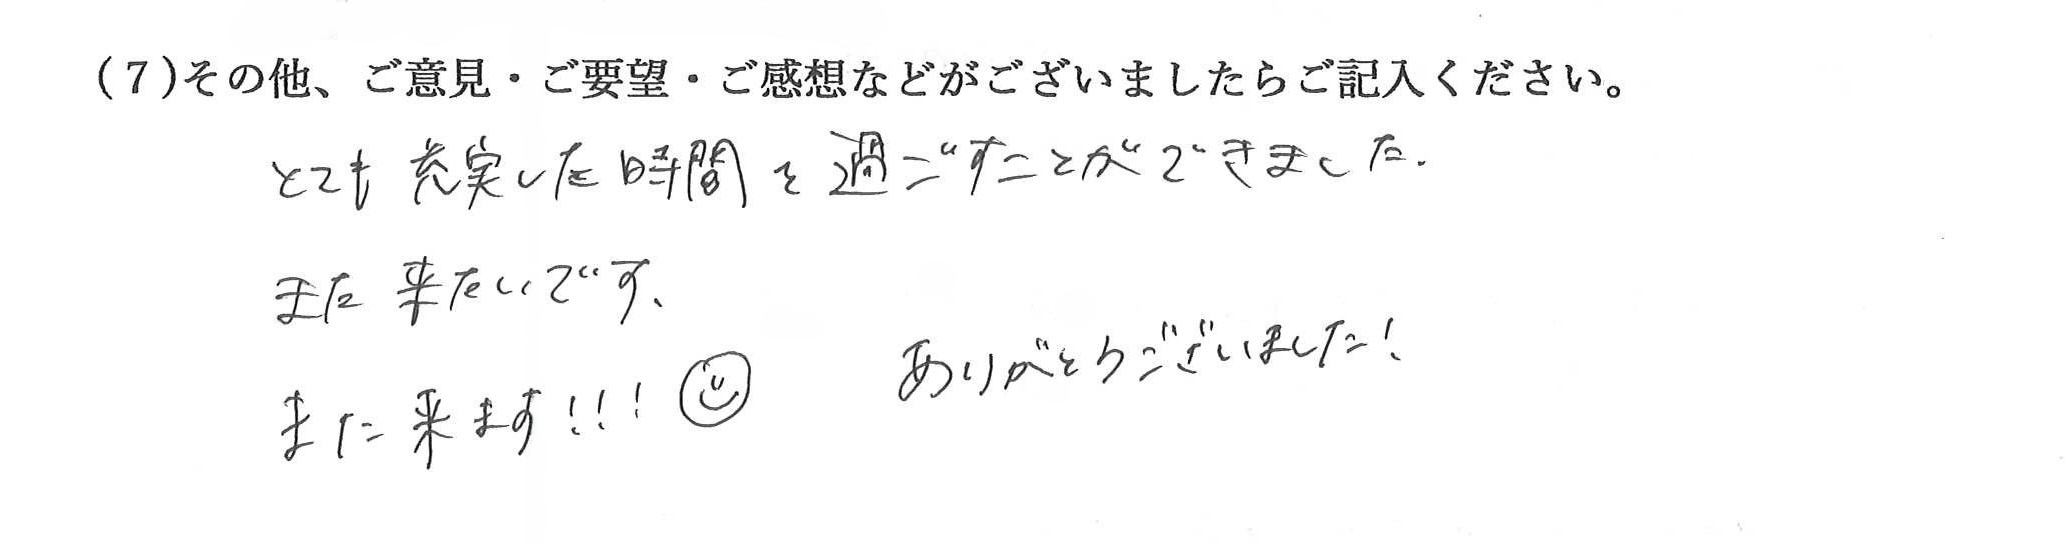 (7)その他、ご意見・ご要望・ご感想などがございましたらご記入ください。
とても充実した時間を過ごすことができました.
また来たいです、
また来ます!!!
ありがとうございました!